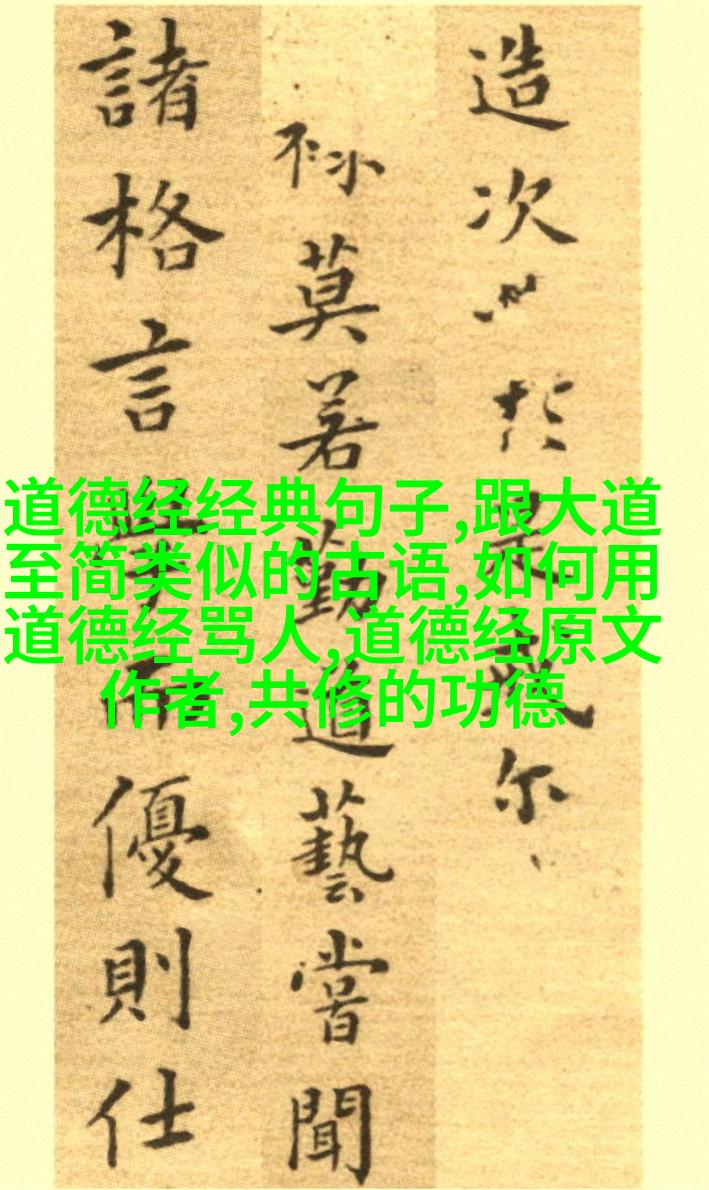 造次於是尔
莫若勤道藝嘗聞
諸格言學而優則仕
道德经经典句子,跟大道
至简类似的古语,如何用
道德经骂人,道德经原文
作者,共修的功德